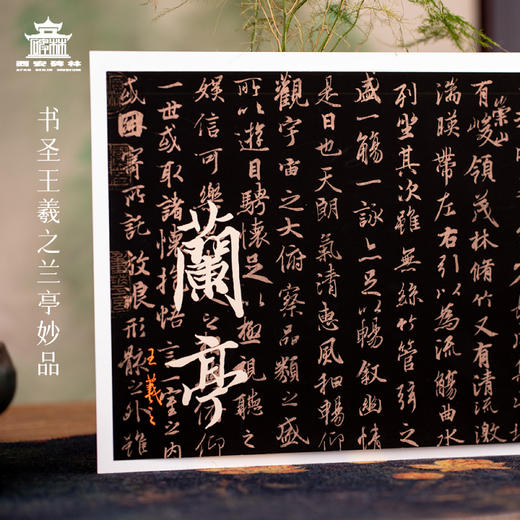 西安碑林
XI'AN BEILIN MUSEUM
书圣王羲之兰亭妙品
崇山
有峻領茂林脩竹又有清流激
湍暎帶左右引以為流觴曲水
列坐其次雖無絲竹管弦之
盛一觴一詠亦足以暢敘幽情
是日也天朗氣清惠風和暢仰
觀宇宙之大俯察品類之盛
所以遊目騁懷足以極視聽之
娛信可樂之仰
一世或取諸懷抱悟言一室之內
或因寄所託放浪形骸之外雖
蘭亭
王羲之